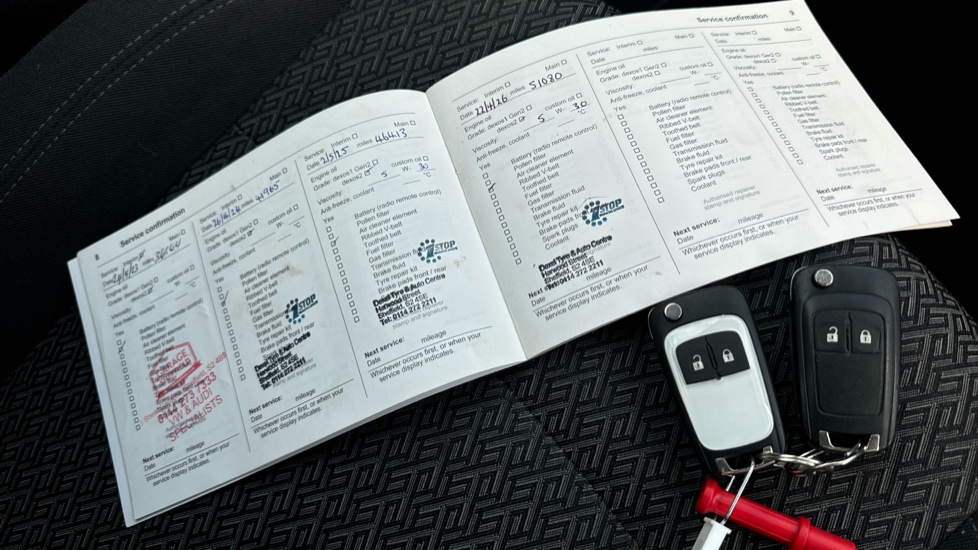 8
Service confirmation
Service: Interim Main
Date miles 36164
Engine oil
Grade: dexos1 Gen2 custom oil
dexos2
Viscosity: W-
Anti-freeze, coolant °C
Yes
Battery (radio remote control)
Pollen filter
Air cleaner element
Ribbed V-belt
Toothed belt
GARAGE
VW & AUDI
SPECIALISTS
Next service:
Date mileage
Whichever occurs first, or when your
service display indicates.
Service: Interim Main
Date miles 41965
Engine oil
Grade: dexos1 Gen2 custom oil
dexos2
Viscosity: W-
Anti-freeze, coolant °C
Yes
Battery (radio remote control)
Pollen filter
Air cleaner element
Ribbed V-belt
Toothed belt
Fuel filter
Gas filter
Transmission fluid
Brake fluid
Tyre repair kit
Brake pads front / rear
STOP
Darnal Tyre & Auto Centre
Harwood Street
Sheffield, S2 4SE
Tel: 0114 272 2211
stamp and signature
Next service:
Date mileage
Whichever occurs first, or when your
service display indicates.
Service: Interim Main
Date 2/5/25 miles 46413
Engine oil
Grade: dexos1 Gen2 custom oil
dexos2
Viscosity: 5 W- 30
Anti-freeze, coolant °C
Yes
Battery (radio remote control)
Pollen filter
Air cleaner element
Ribbed V-belt
Toothed belt
Fuel filter
Gas filter
Transmission fluid
Brake fluid
Tyre repair kit
Brake pads front / rear
STOP
Darnal Tyre & Auto Centre
Harwood Street
Sheffield, S2 4SE
Tel: 0114 272 2211
stamp and signature
Next service:
Date mileage
Whichever occurs first, or when your
service display indicates.
Service confirmation 9
Service: Interim Main
Date 22/4/26 miles 51080
Engine oil
Grade: dexos1 Gen2 custom oil
dexos2
Viscosity: 5 W- 30
Anti-freeze, coolant °C
Yes
Battery (radio remote control)
Pollen filter
Air cleaner element
Ribbed V-belt
Toothed belt
Fuel filter
Gas filter
Transmission fluid
Brake fluid
Tyre repair kit
Spark plugs
Coolant
STOP
Darnal Tyre & Auto Centre
Harwood Street
Sheffield, S2 4SE
Tel: 0114 272 2211
Next
Date
Whichever occurs first, or when your
service display indicates.
Service: Interim Main
Date miles
Engine oil
Grade: dexos1 Gen2 custom oil
dexos2
Viscosity: W-
Anti-freeze, coolant °C
Yes
Battery (radio remote control)
Pollen filter
Air cleaner element
Ribbed V-belt
Toothed belt
Fuel filter
Gas filter
Transmission fluid
Brake fluid
Tyre repair kit
Brake pads front / rear
Spark plugs
Coolant
Authorised repairer
stamp and signature
Next service:
Date mileage
Whichever occurs first, or when your
service display indicates.
Service: Interim Main
Date miles
Engine oil
Grade: dexos1 Gen2 custom oil
dexos2
Viscosity: W-
Anti-freeze, coolant °C
Yes
Battery (radio remote control)
Pollen filter
Air cleaner element
Ribbed V-belt
Toothed belt
Fuel filter
Gas filter
Transmission fluid
Brake fluid
Tyre repair kit
Brake pads front / rear
Spark plugs
Coolant
Authorised repairer
stamp and signature
Next service:
Date mileage
Whichever occurs first, or when your
service display indicates.